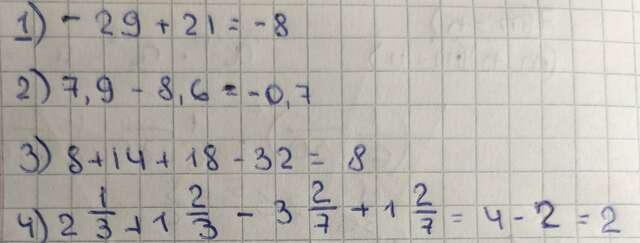 1) - 29 + 21 = -8
2) 7,9 - 8,6 = -0,7
3) 8 + 14 + 18 - 32 = 8
4) 2 1/3 + 1 2/3 - 3 2/7 + 1 2/7 = 4 - 2 = 2